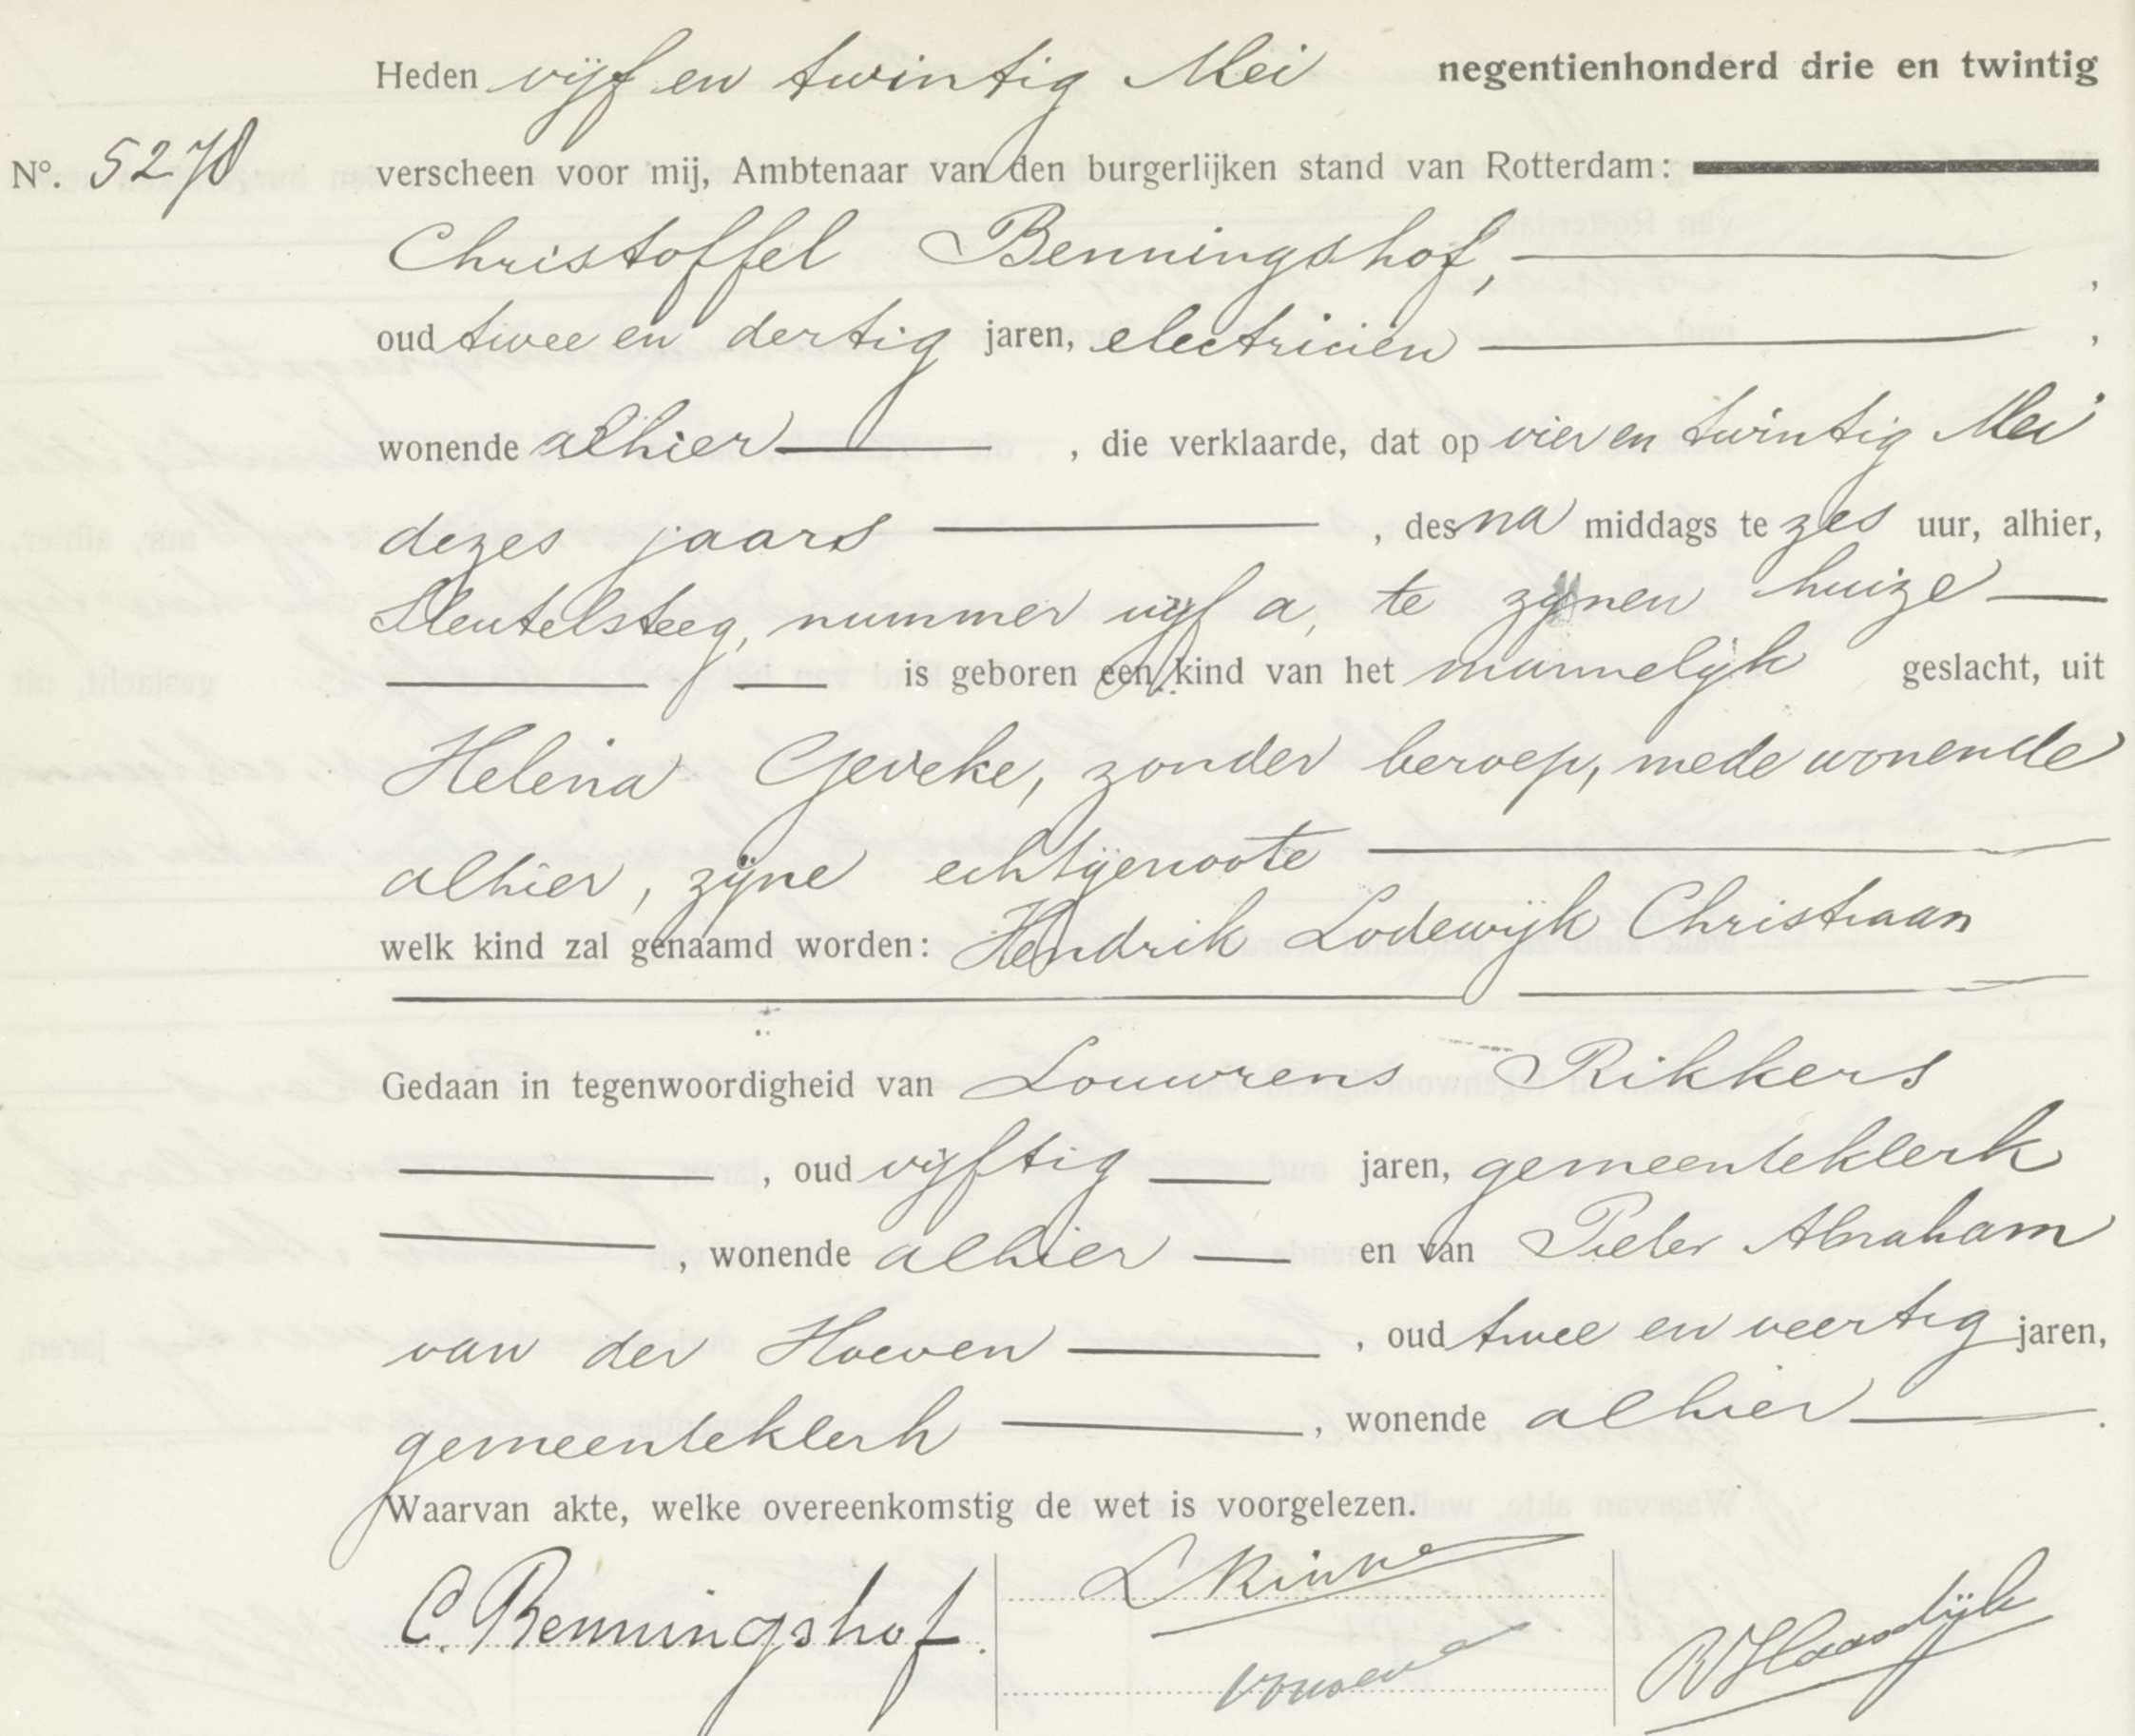 Heden vijf en twintig Mei negentienhonderd drie en twintig
No. 5270 verscheen voor mij, Ambtenaar van den burgerlijken stand van Rotterdam:
Christoffel Benningshof, ,
oud twee en dertig jaren, electriciën ,
wonende alhier , die verklaarde, dat op vier en twintig Mei
dezes jaars , des na middags te zes uur, alhier,
Sleutelsteeg, nummer vijf a, te zijnen huize
is geboren een kind van het mannelijk geslacht, uit
Helena Geveke, zonder beroep, mede wonende
alhier, zijne echtgenoote
welk kind zal genaamd worden: Hendrik Lodewijk Christiaan
Gedaan in tegenwoordigheid van Louwrens Rikkers
, oud vijftig jaren, gemeenteklerk
, wonende alhier en van Pieter Abraham
van der Hoeven , oud twee en veertig jaren,
gemeenteklerk , wonende alhier .
Waarvan akte, welke overeenkomstig de wet is voorgelezen.
C. Benningshof.